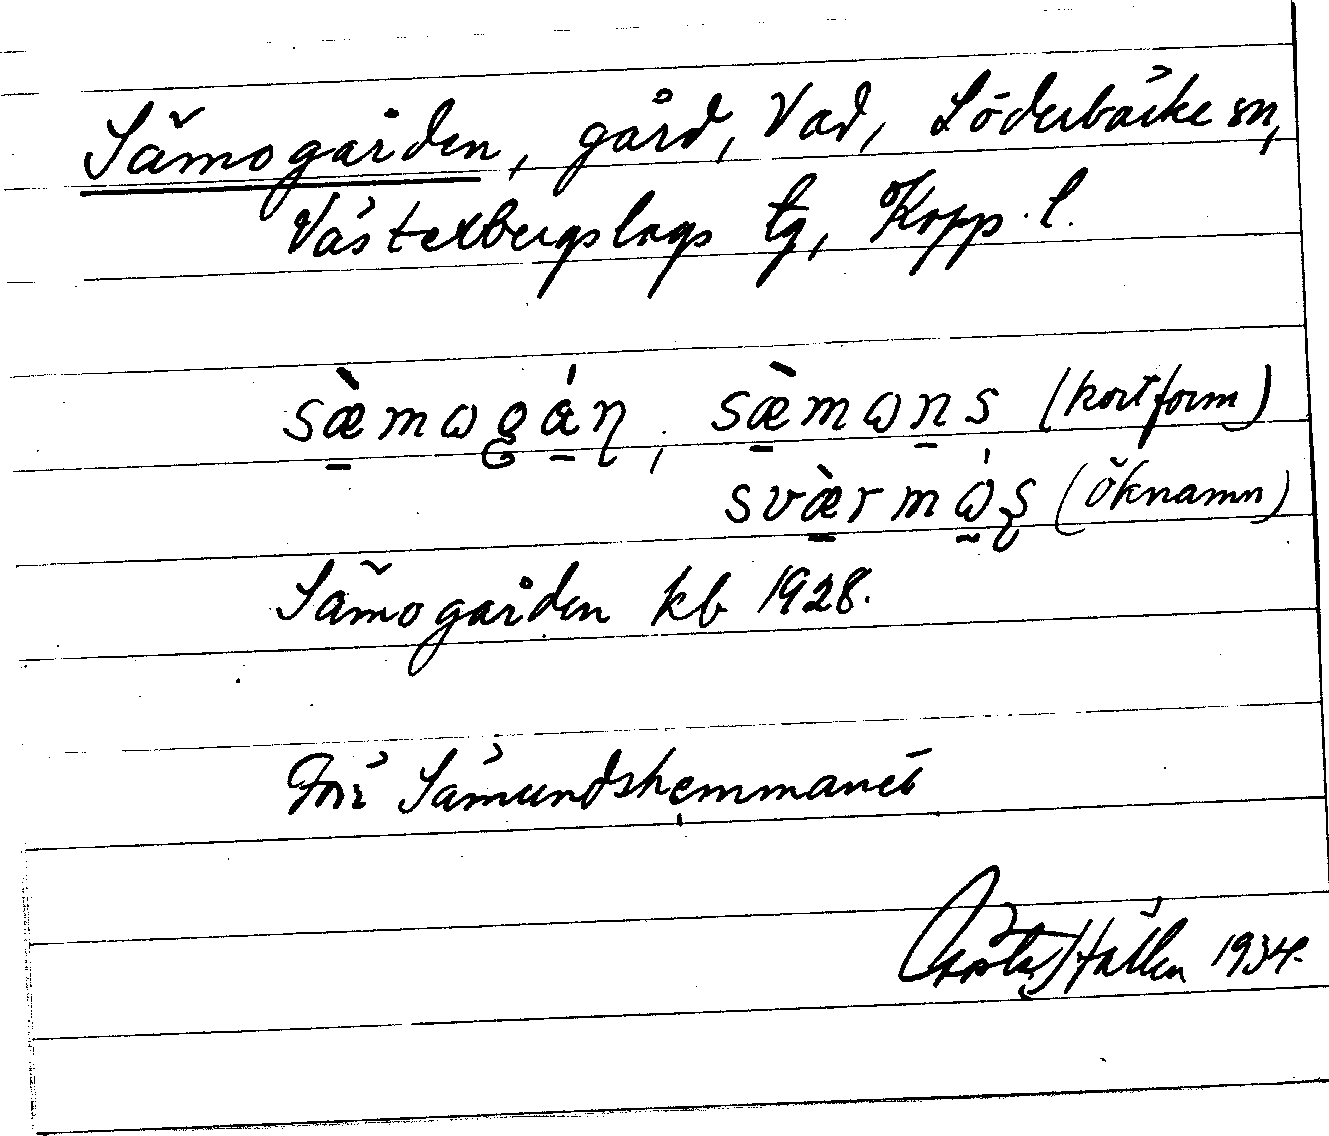 Sämogården, gård, Vad, Söderbärke sn,
Västerbergslags tg, Kopp. l.
sæ̀mωgάn, sæ̀mωns (kortform)
sværmὼs (öknamn)
Sämogården kb 1928.
Förr Sämundshemmanet
Gösta Hallén 1934.